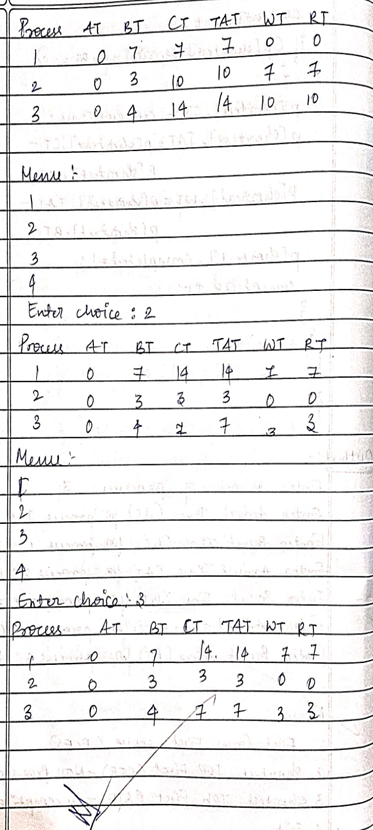 Process AT BT CT TAT WT RT
1 0 7 7 7 0 0
2 0 3 10 10 7 7
3 0 4 14 14 10 10
Menu :-
1
2
3
4
Enter choice : 2
Process AT BT CT TAT WT RT
1 0 7 14 14 7 7
2 0 3 3 3 0 0
3 0 4 7 7 3 3
Menu :-
1
2
3
4
Enter choice : 3
Process AT BT CT TAT WT RT
1 0 7 14 14 7 7
2 0 3 3 3 0 0
3 0 4 7 7 3 3